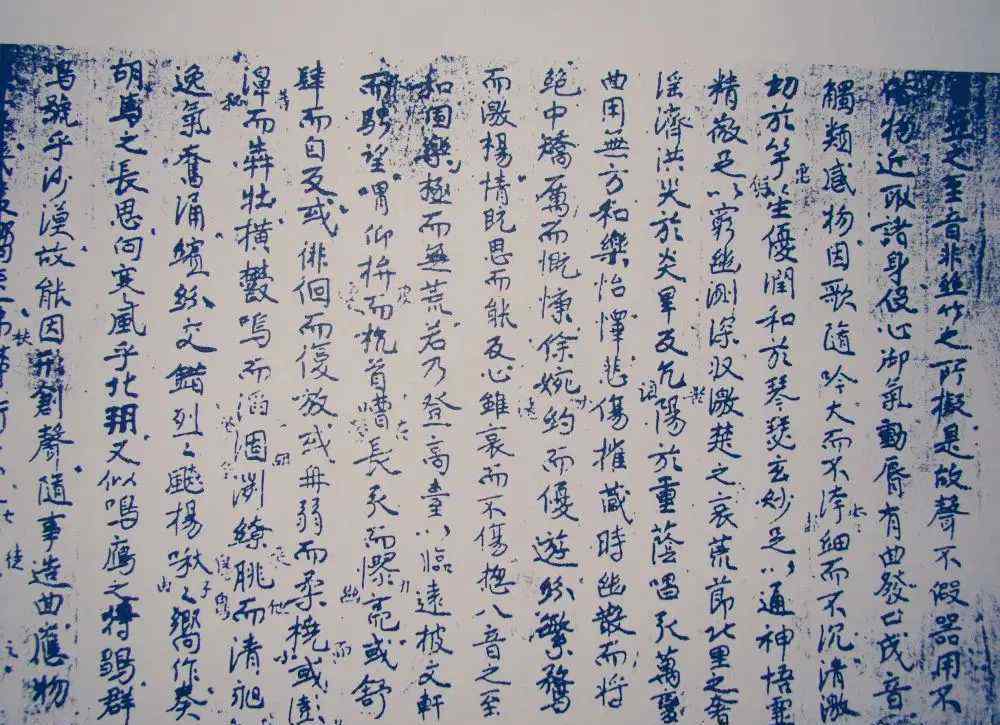 之至音非絲竹之所擬是故聲不假器用不
物近取諸身役心御氣動脣有曲發口成音
觸類感物因歌隨吟大而不洿細而不沉清激
切於竽笙優潤和於琴瑟玄妙足以通神悟靈
精微足以窮幽測深收激楚之哀荒節北里之奢
淫濟洪災於炎旱反亢陽於重蔭唱引萬變
曲用無方和樂怡懌悲傷摧藏時幽散而将
絕中矯厲而慨慷徐婉約而優遊紛繁騖
而激楊情既思而能反心雖哀而不傷揔八音之至
和固樂極而無荒若乃登高臺以臨遠披文軒
而騁望喟仰抃而抗首嘈長引而憀亮或舒
肆而自反或徘徊而復放或冉弱而柔撓或澎
濞而奔壯橫鬱鳴而滔涸洌繚朓而清昶
逸氣奮涌繽紛交錯列々飈楊啾々響作奏
胡馬之長思向寒風乎北朔又似鳴鴈之将鶵群
鳴號乎沙漠故能因形創聲隨事造曲應物